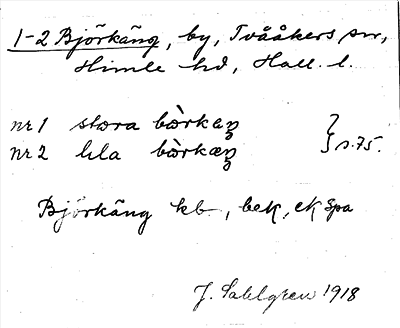 1-2 Björkäng, by, Tvååkers sn,
Himle hd, Hall. l.
nr 1 stora bò̀rkaŋ } s. 75.
nr 2 lila bò̀rkæŋ
Björkäng kb, bek, ek Spa
J. Sahlgren 1918